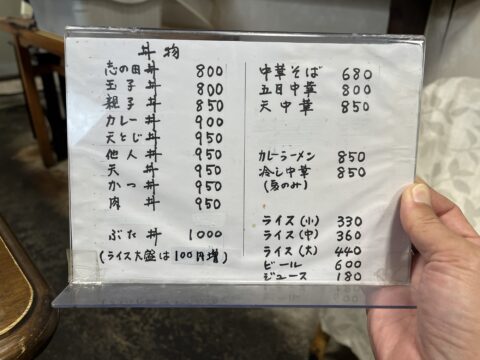 丼物
志の田丼 800
玉子丼 800
親子丼 850
カレー丼 900
天とじ丼 950
他人丼 950
天丼 950
かつ丼 950
肉丼 950
ぶた丼 1000
(ライス大盛は100円増)
中華そば 680
五目中華 800
天中華 850
カレーラーメン 850
冷し中華 850
(夏のみ)
ライス(小) 330
ライス(中) 360
ライス(大) 440
ビール 600
ジュース 180